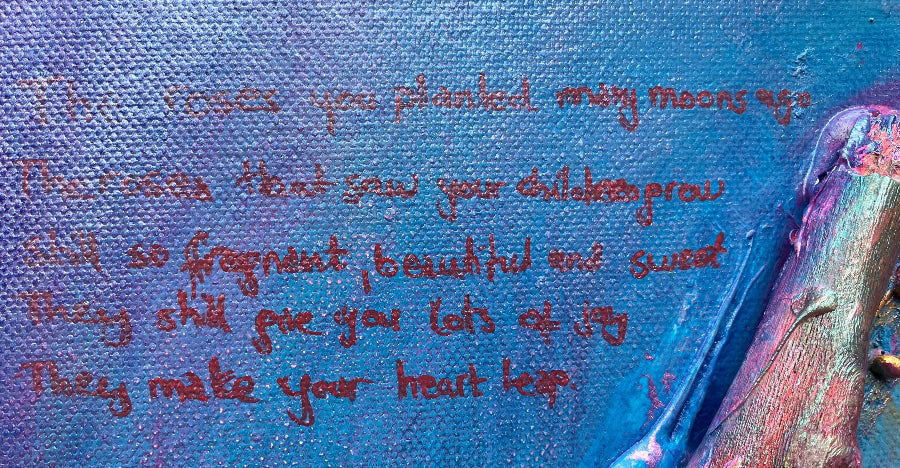 The roses you planted many moons ago
The roses that saw your children grow
still so fragnant, beautiful and sweet
They still give you lots of joy
They make your heart leap.